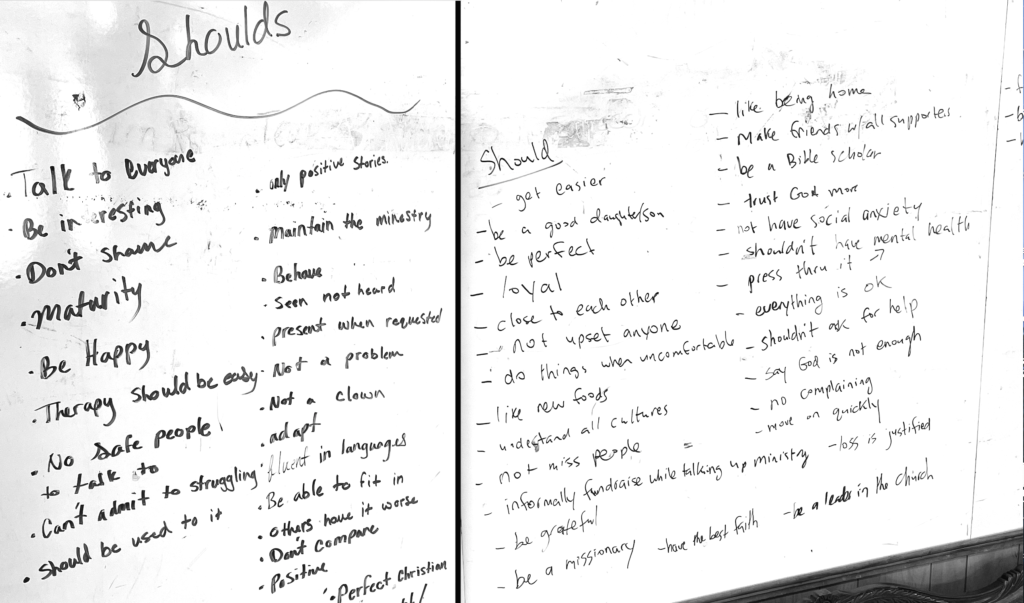 Shoulds
• Talk to everyone
• Be interesting
• Don't shame
• Maturity
• Be Happy
• Therapy should be easy
• No safe people
to talk to
• Can't admit to struggling
• Should be used to it
• only positive stories.
• Maintain the ministry
• Behave
• Seen not heard
• present when requested
• Not a problem
• Not a clown
• adapt
• fluent in languages
• Be able to fit in
• others have it worse
• Don't compare
• Positive
• Perfect Christian
Should
- get easier
- be a good daughter/son
- be perfect
- loyal
- close to each other
- not upset anyone
- do things when uncomfortable
- like new foods
- understand all cultures
- not miss people
- informally fundraise while talking up ministry
- be grateful
- be a missionary
- have the best faith
- be a leader in the church
- like being home
- Make friends w/ all supporters
- be a Bible scholar
- trust God more
- not have social anxiety
- shouldn't have mental health
- press thru it ↗
- everything is ok
- shouldn't ask for help
- say God is not enough
- no complaining
- move on quickly
- loss is justified